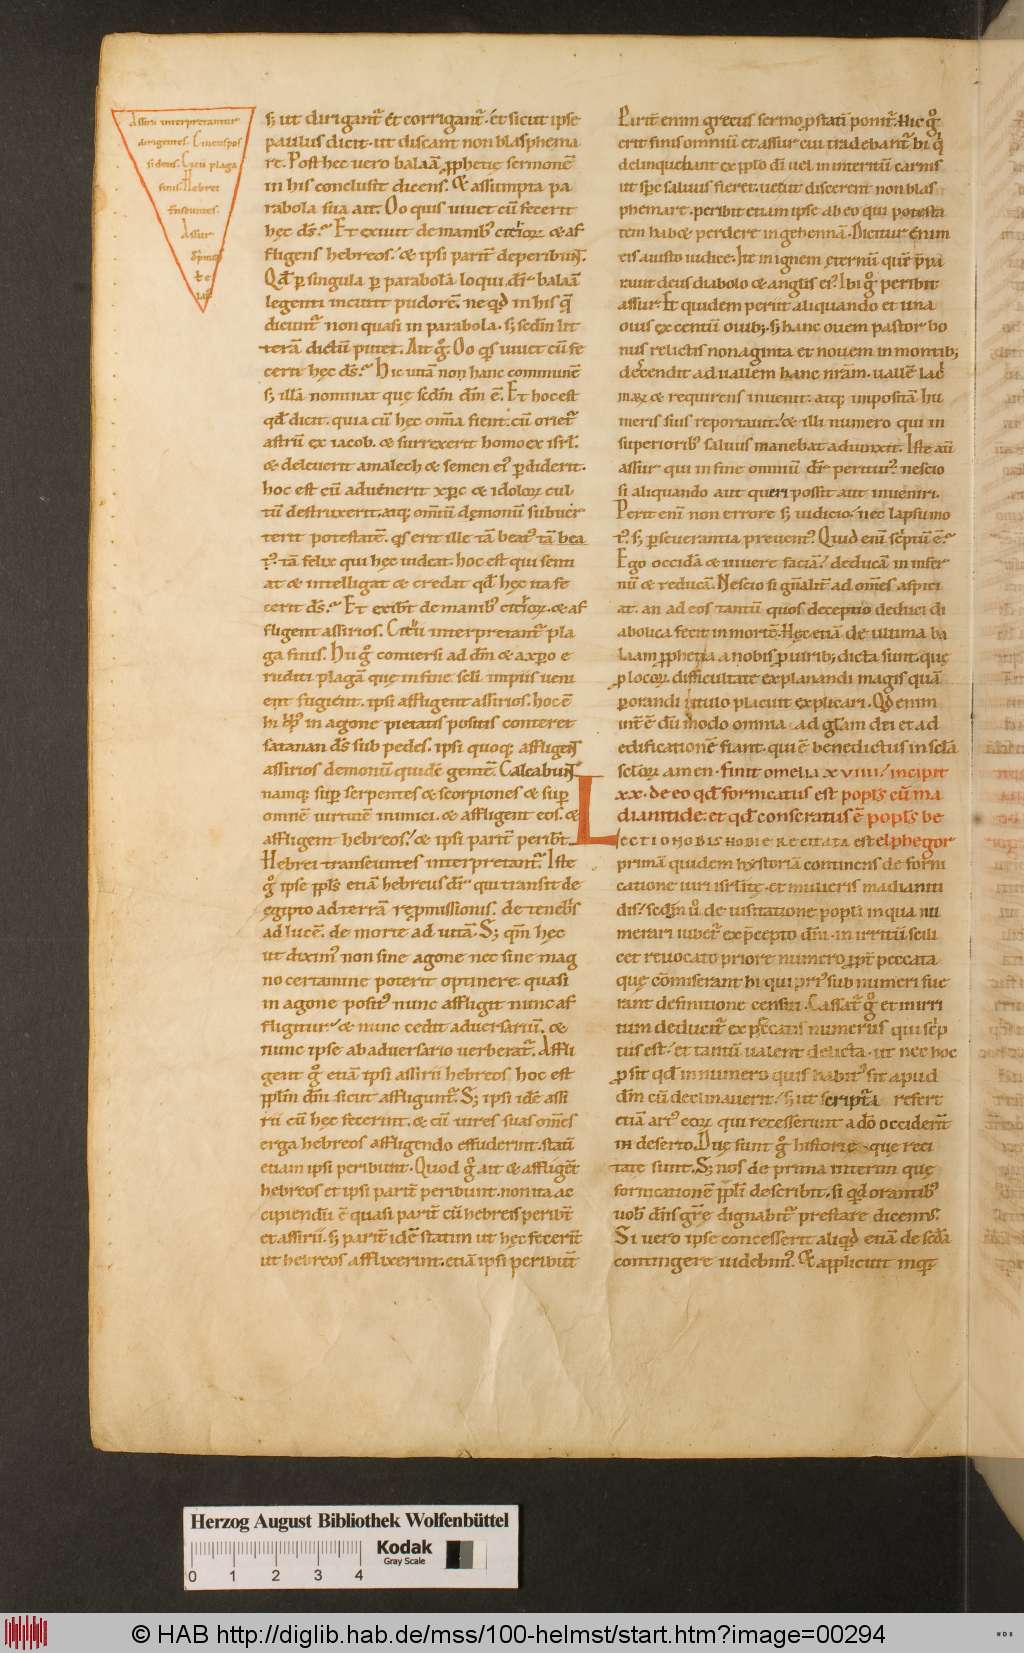 Assirii interpretantur
dirigentes. Cineus pos
sideus. Citii plaga
finis. Hebrei
transeuntes.
Assur
s; ut dirigant᷑ ⁊ corrigant᷑. et sicut ipse
paulus dicit. ut discant non blasphema
re. Post hec uero balaā ꝓphetię sermonē
in his conclusit dicens. Et assumpta pa
rabola sua ait. O o quis uiuet cū fecerit
hęc dꝰ. Et exiuit de manibꝰ citiorꝝ & af
fligens hebreos. & ipsi parit᷑ deperibunt.
Qđ ꝑ singula ꝑ parabolā loqui dr̄ balaā
legenti incutit pudorē. ne qđ in his quę
dicunt᷑ non quasi in parabola. s; scđm lit
terā dictū putet. Ait gͦ. O o qͥs uiuet cū fe
cerit hęc dꝰ. Hic uitā non hanc communē
s; illā nominat quę scđm dm̄ ē. Et hoc est
qđ dicit. quia cū hęc om̄a fient. cū oriet᷑
astrū ex iacob. & surrexerit homo ex isrl̄.
& deleuerit amalech & semen eiꝰ ꝑdiderit.
hoc est cū aduenerit xp̄c & idolorꝝ cul
tū destruxerit. atq; omniū demonū subuer
terit potestatē. qͥs erit ille tā beatꝰ tā bea
tꝰ. tā felix qui hęc uideat. hoc est qui senti
at & intelligat & credat qđ hęc ita fe
cerit dꝰ. Et exibit de manibꝰ citiorꝝ. & af
fligent assirios. Citii interpretant᷑ pla
ga finis. Hii gͦ conuersi ad dm̄ & a xp̄o e
ruditi plagā que in fine scl̄i impiis ueni
ent fugient. ipsi affligent assirios. hoc ē
hi in agone pietatis positis conteret
satanan dꝰ sub pedes. ipsi quoq; affligent
assirios demonū quidē gentē. Calcabunt
namq; suꝑ serpentes & scorpiones & suꝑ
omnē uirtutē inimici. & affligent eos. &
affligent hebreos. & ipsi parit᷑ peribt̄.
Hebrei transeuntes interpretant᷑. Iste
gͦ ipse ppl̄s etiā hebreus dr̄ qui transit de
egipto ad terrā repmissionis. de tenebris
ad lucē. de morte ad uitā. S; qm̄ hęc
ut diximꝰ non sine agone nec sine mag
no certamine poterit optinere. quasi
in agone positꝰ nunc affligit nunc af
fligitur. & nunc cedit aduersariū. &
nunc ipse ab aduersario uerberat᷑. Affli
gent gͦ etiā ipsi assirii hebreos hoc est
ppl̄m dm̄ sicut affligunt᷑. S; ipsi idē assi
rii cū hęc fecerint. & cū uires suas om̄es
erga hebreos affligendo effuderint. statī
etiam ipsi peribunt. Quod gͦ ait & affligēt
hebreos et ipsi parit᷑ peribunt. non ita ac
cipiendū ē quasi parit᷑ cū hebreis peribt̄
et assirii. s; parit᷑ idē statim ut hęc fecerit̄
ut hebreos afflixerint. etiā ipsi peribūt
Pirit᷑ enim grecus sermo ꝓ statī ponit᷑. Hic gͦ
erit finis omniū et assiur cui tradebant᷑ hi qͥ
delinquebant ex ipl̄o dī uel in interitū carnis
ut sp̄c saluus fieret. uel ut discerent non blas
phemare. peribit etiam ipse ab eo qui potesta
tem habet perdere in gehennā. Dicitur enim
eis a iusto iudice. Ite in ignem ęternū quē p̄pa
rauit deus diabolo & anglis eiꝰ. Ibi gͦ peribit
assur. Et quidem periit aliquando et una
ouis ex centū ouibꝫ. s; hanc ouem pastor bo
nus relictis nonaginta et nouem in montibꝫ
descendit ad uallem hanc nr̄am. uallē lacri
marꝝ & requirens inuenit. atq; impositā hu
meris suis reportauit. & illi numero qui in
superioribꝰ saluus manebat adiunxit. Iste aū
assiur qui in fine omniū dr̄ periturꝰ nescio
si aliquando aut queri possit aut inueniri.
Perit enī non errore s; iudicio. nec lapsu mo
tꝰ. s; ꝑseuerantia preuentꝰ. Quid enī scriptū ē.
Ego occidā & uiuere faciā. deducā in infer
nū & reducā. Nescio si gn̄alit᷑ ad om̄es aspici
at. an ad eos tantū quos deceptio deduci di
abolica fecit in mortē. Hęc etiā de ultima ba
laam ꝓphetia a nobis ꝓ uiribꝫ dicta sunt. quę
ꝓ locorꝝ difficultate explanandi magis quā
ꝑorandi titulo placuit explicari. Qđ enim
int᷑ ē dū modo omnia ad gl̄am dei et ad
edificationē fiant. qui ē benedictus in scl̄a
scl̄orꝝ amen. finit omelia xviiii. incipit
xx. de eo qđ fornicatus est popl̄s cū ma
dianitide. et qđ consecratus ē popl̄s be
elphegor
Lectio nobis hodie recitata est
primā quidem hystoriā continens de forni
catione uiri isrl̄itę. et mulieris madianiti
dis. scđm u̇ de uisitatione popli in qua nu
merari iubet᷑ ex p̄cepto dn̄i. in irritū scili
cet reuocato priore numero ꝓpt᷑ peccata
quę cōmiserant hi qui priꝰ sub numeri fue
rant definitione censiti. Cassat᷑ gͦ et in irri
tum deducit᷑ ex peccatis numerus qui scrip
tus est. et tantū ualent delicta. ut nec hoc
ꝓsit qđ in numero quis habitꝰ sit apud
dm̄ cū declinauerit. s; ut scriptꝰa refert
etiā artꝰ eorꝝ qui recesserunt a dō occiderit̄
in deserto. Duę sunt gͦ historię. que reci
tatę sunt. S; nos de prima interim quę
fornicationē ppl̄i describit. si qđ orantibꝰ
uob̄ dn̄s gr̄e dignabit᷑ prestare dicemꝰ.
Si uero ipse concesserit aliqͥd etiā de scđa
contingere uidebimꝰ. Et applicuit inqͥt
Herzog August Bibliothek Wolfenbüttel
Kodak
Gray Scale
0 1 2 3 4
© HAB http://diglib.hab.de/mss/100-helmst/start.htm?image=00294
HAB